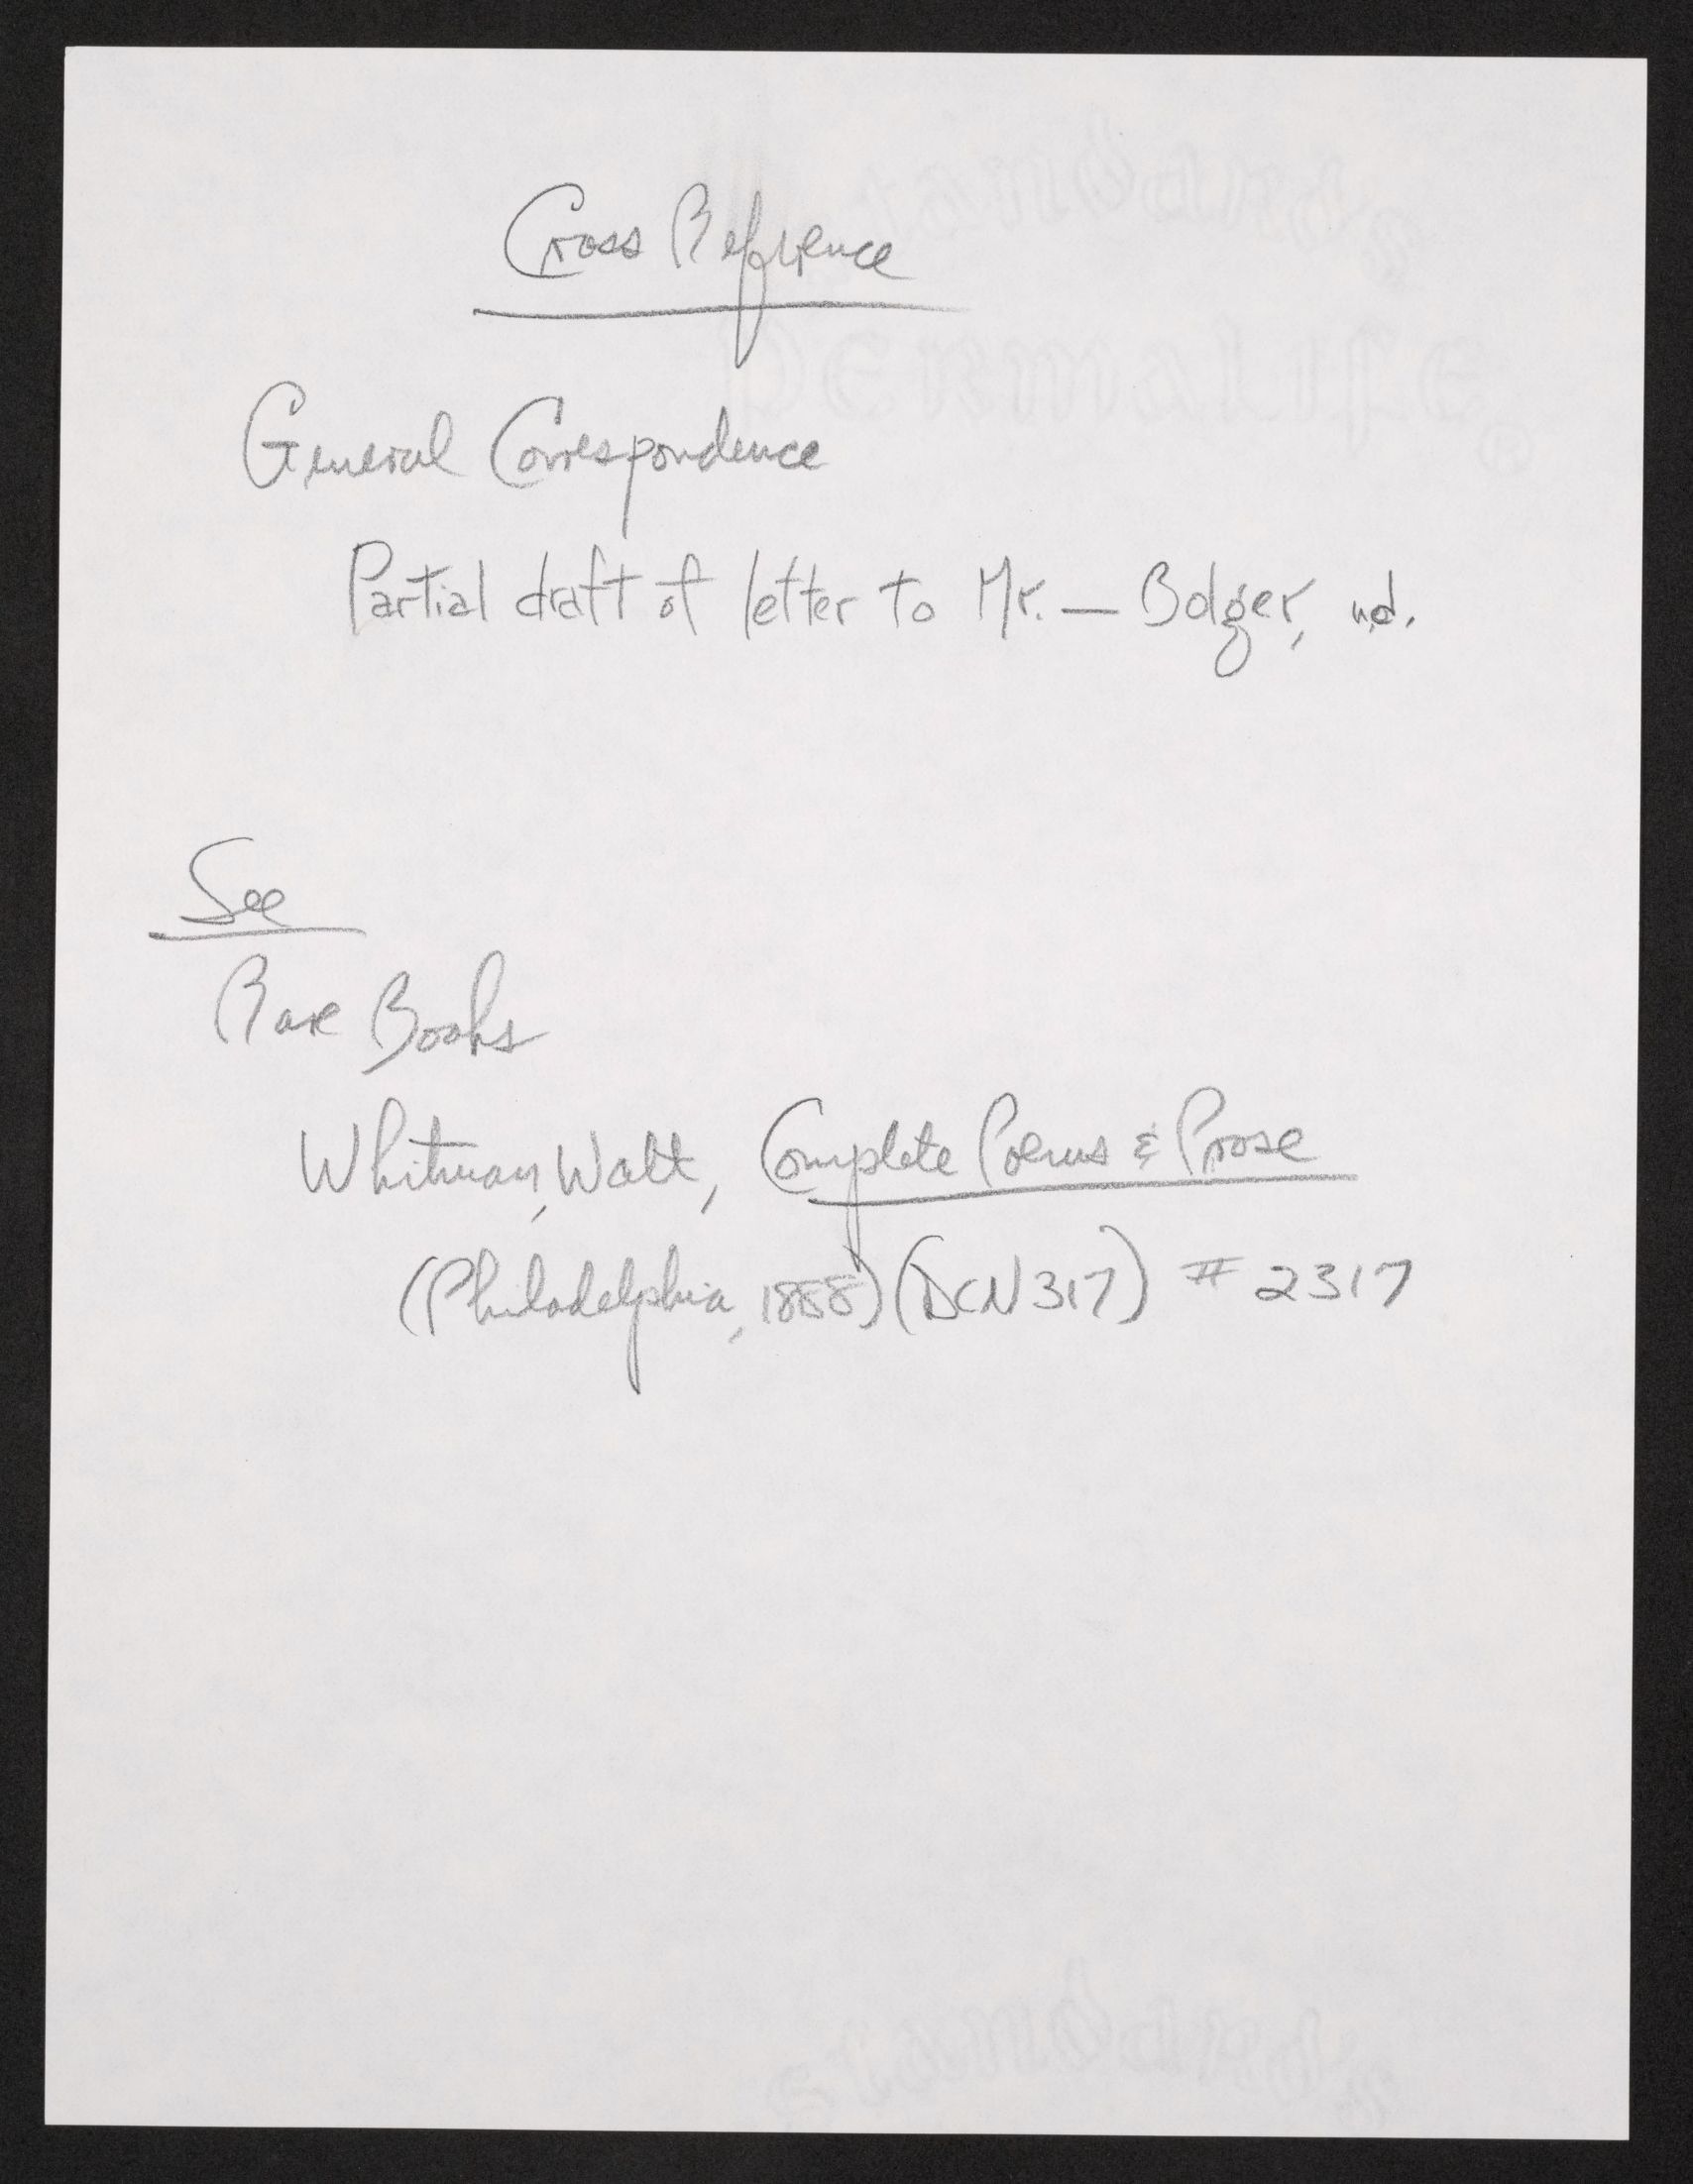 Cross Reference
General Correspondence
Partial draft of letter to Mr. — Bolger, n.d.
See
Rare Books
Whitman, Walt, Complete Poems & Prose
(Philadelphia, 1888) (DCN 317) # 2317